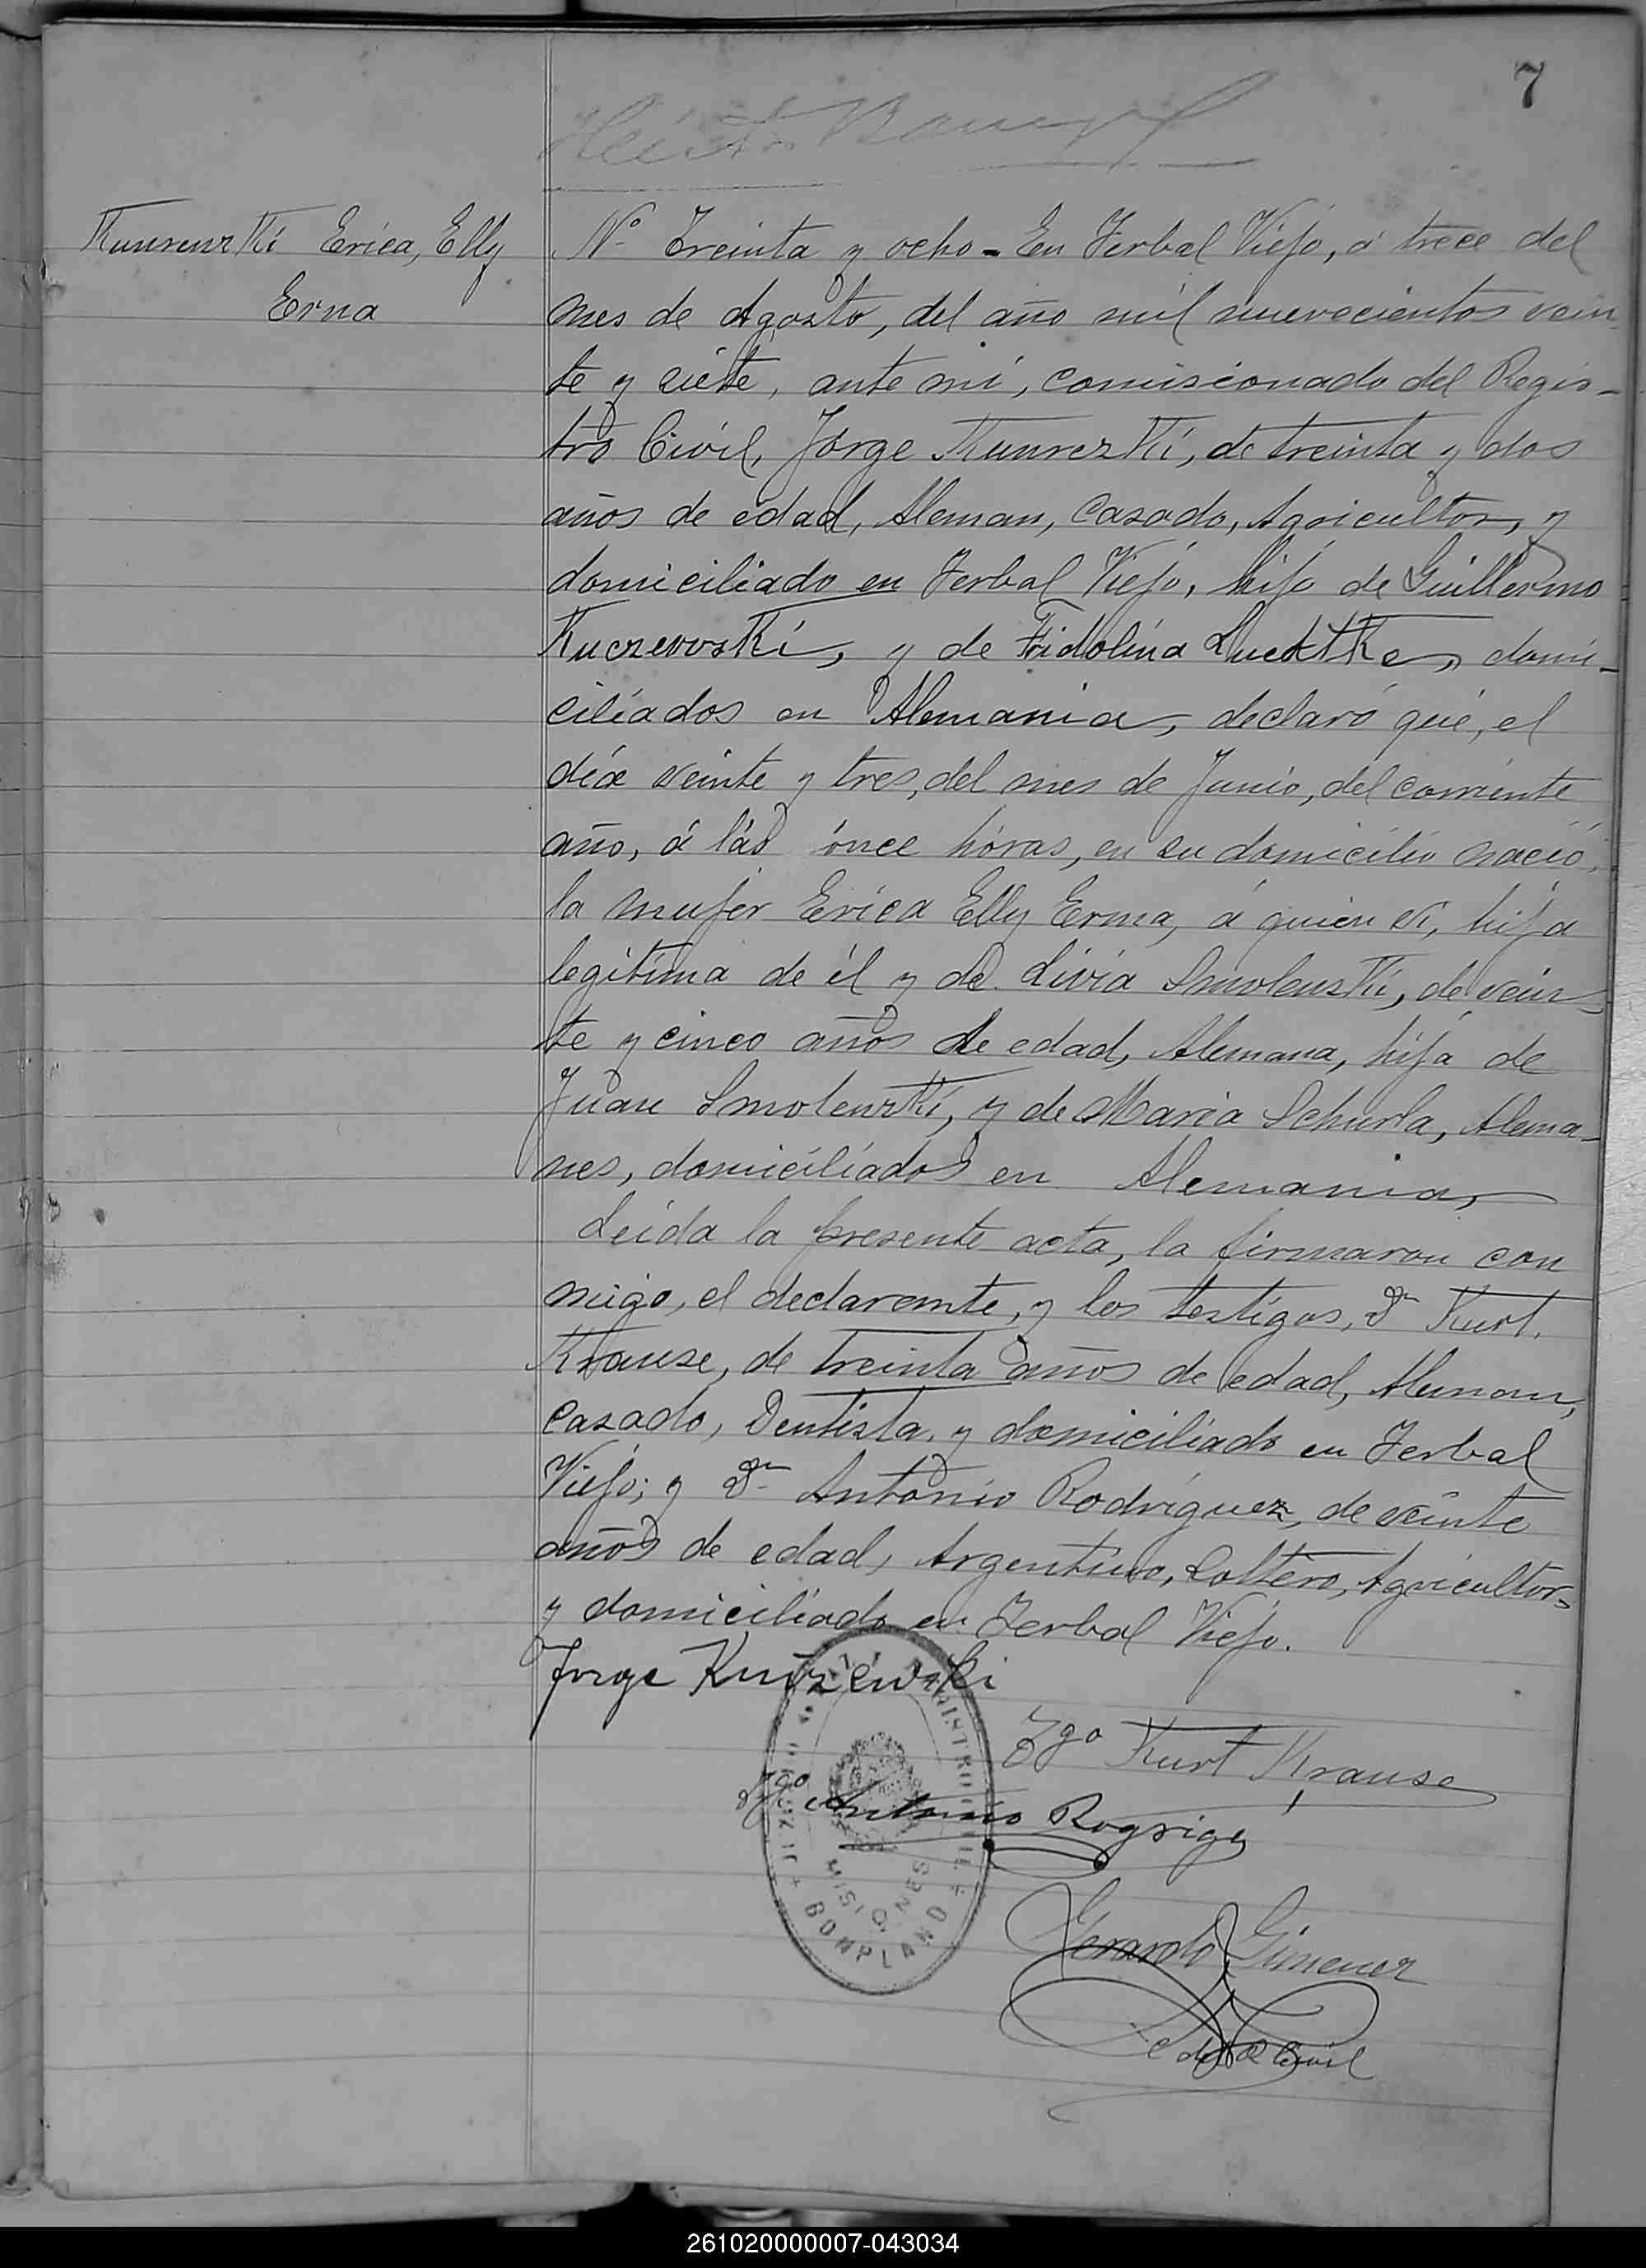 7
Kunrenzki Erica, Elly
Erna
Nº Treinta y ocho - En Yerbal Viejo, á trece del
mes de Agosto, del año mil nuevecientos vein
te y siete, ante mi, comisionado del Regis-
tro Civil, Jorge Kunrezki, de treinta y dos
años de edad, Aleman, Casado, Agricultor, y
domiciliado en Yerbal Viejo, hijo de Guillermo
Kuczewski, y de Fridolina Luedtke, domi-
ciliados en Alemania, declaró qué, el
día veinte y tres, del mes de Junio, del corriente
año, á lás ónce hóras, en su domicilio nació,
la mujer Erica Elly Erma, á quien ví, hija
legítima de él y de Livia Smolenski, de vein
te y cinco años de edad, Alemana, hija de
Juan Smolenski, y de Maria Schurla, Alema-
nes, domiciliados en Alemania,
Leida la presente acta, la firmaron con
migo, el declarante, y los testigos, Dn Kurt.
Krause, de treinta años de edad, Aleman,
Casado, Dentista, y domiciliado en Yerbal
Viejo; y Dn Antonio Rodriguez, de veinte
años de edad, Argentino, Soltero, Agricultor,
y domiciliado en Yerbal Viejo.
Jorge Kuczewski
Tgo Kurt Krause
Tgo Antonio Rogrige
MISIONES
BONPLAND
Gerardo Gimenez
E del R Civil
261020000007-043034